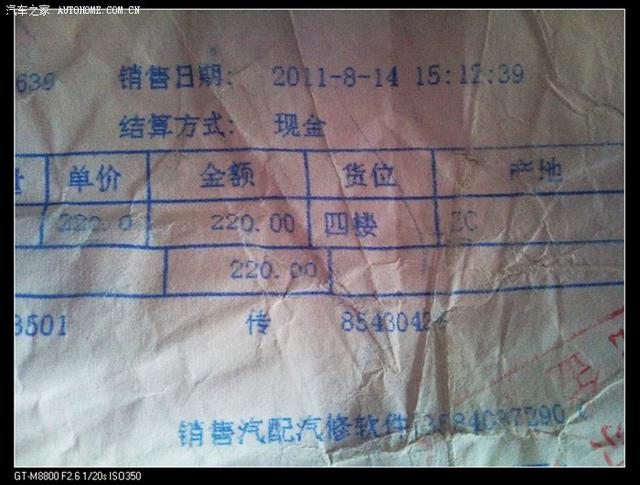 汽车之家 AUTOHOME.COM.CN
639 销售日期: 2011-8-14 15:12:39
结算方式: 现金
量 单价 金额 货位
220.0 220.00 四楼
220.00
3501 传 8543042
销售汽配汽修软件
GT-M8800 F2.6 1/20s ISO350